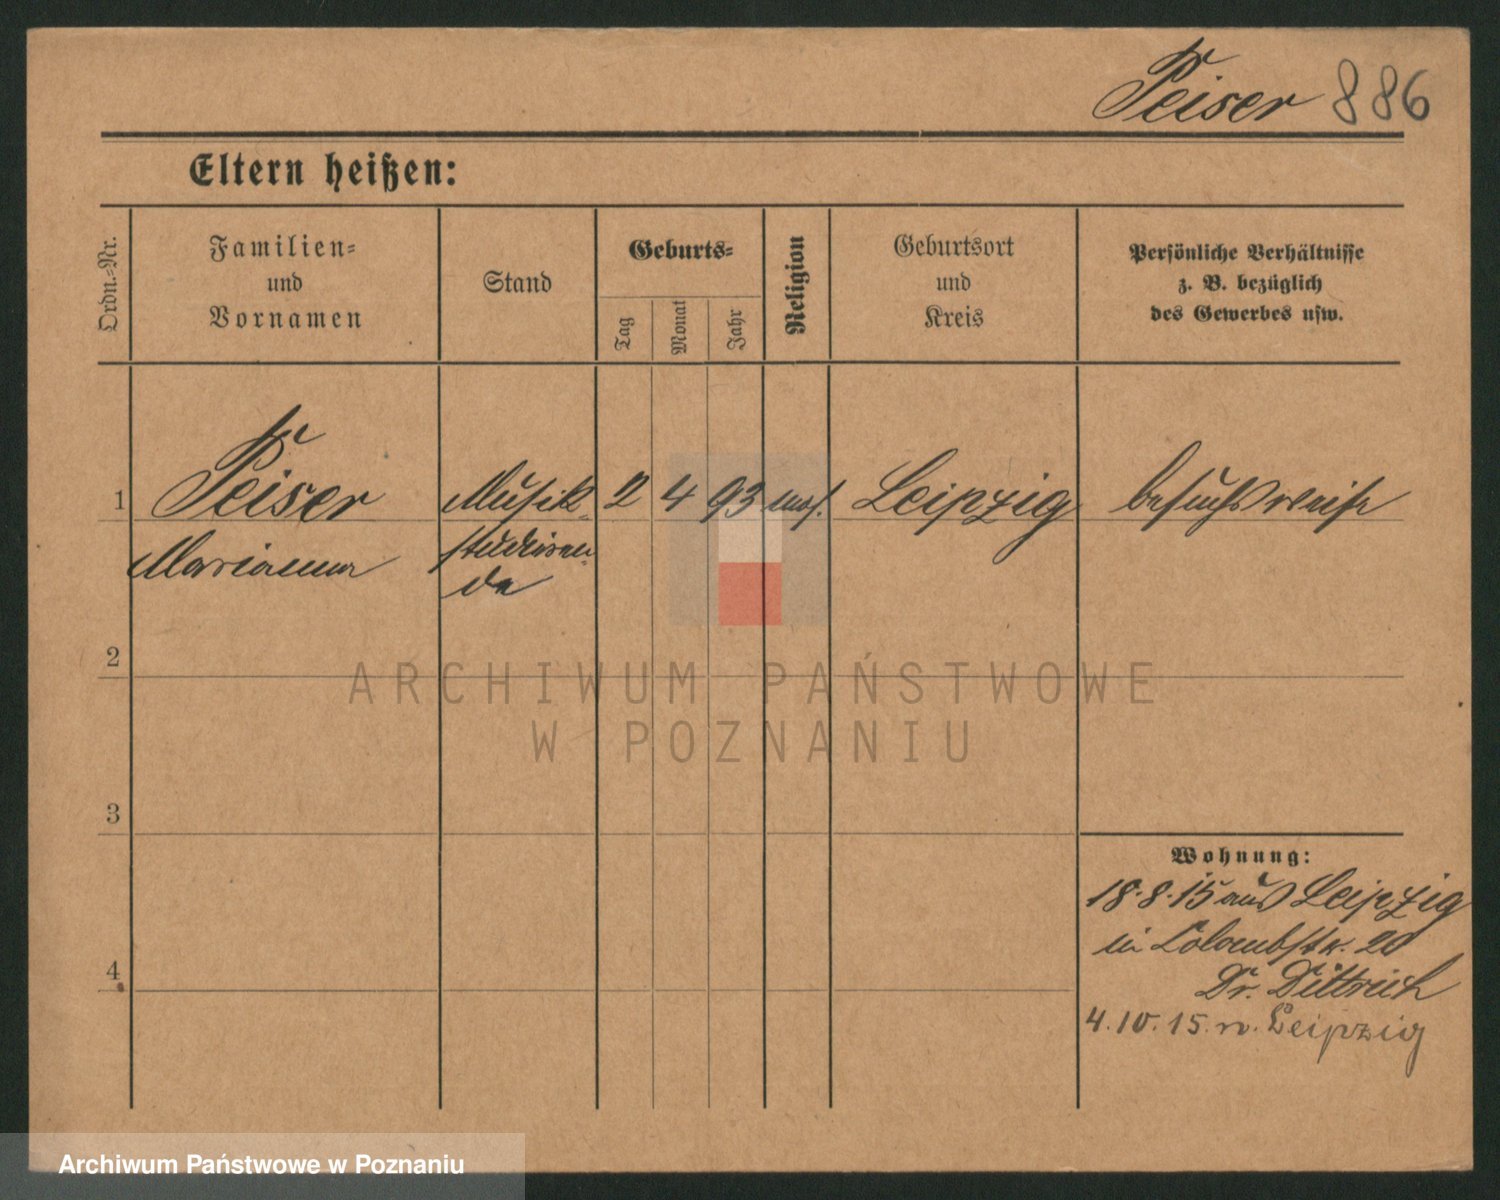 Peiser 886
Eltern heißen:
Ordn.-Nr.
Familien-
und
Vornamen
Stand
Geburts-
Tag
Monat
Jahr
Religion
Geburtsort
und
Kreis
Persönliche Verhältnisse
z. B. bezüglich
des Gewerbes usw.
1 Peiser Musik- 2 4 93 mos. Leipzig besuchsweise
Marianna studieren-
de
2
3
4
ARCHIWUM PAŃSTWOWE
W POZNANIU
Wohnung:
18.8.15 aus Leipzig
in Colombstr. 20
Dr. Dittrich
4.10.15. n. Leipzig
Archiwum Państwowe w Poznaniu